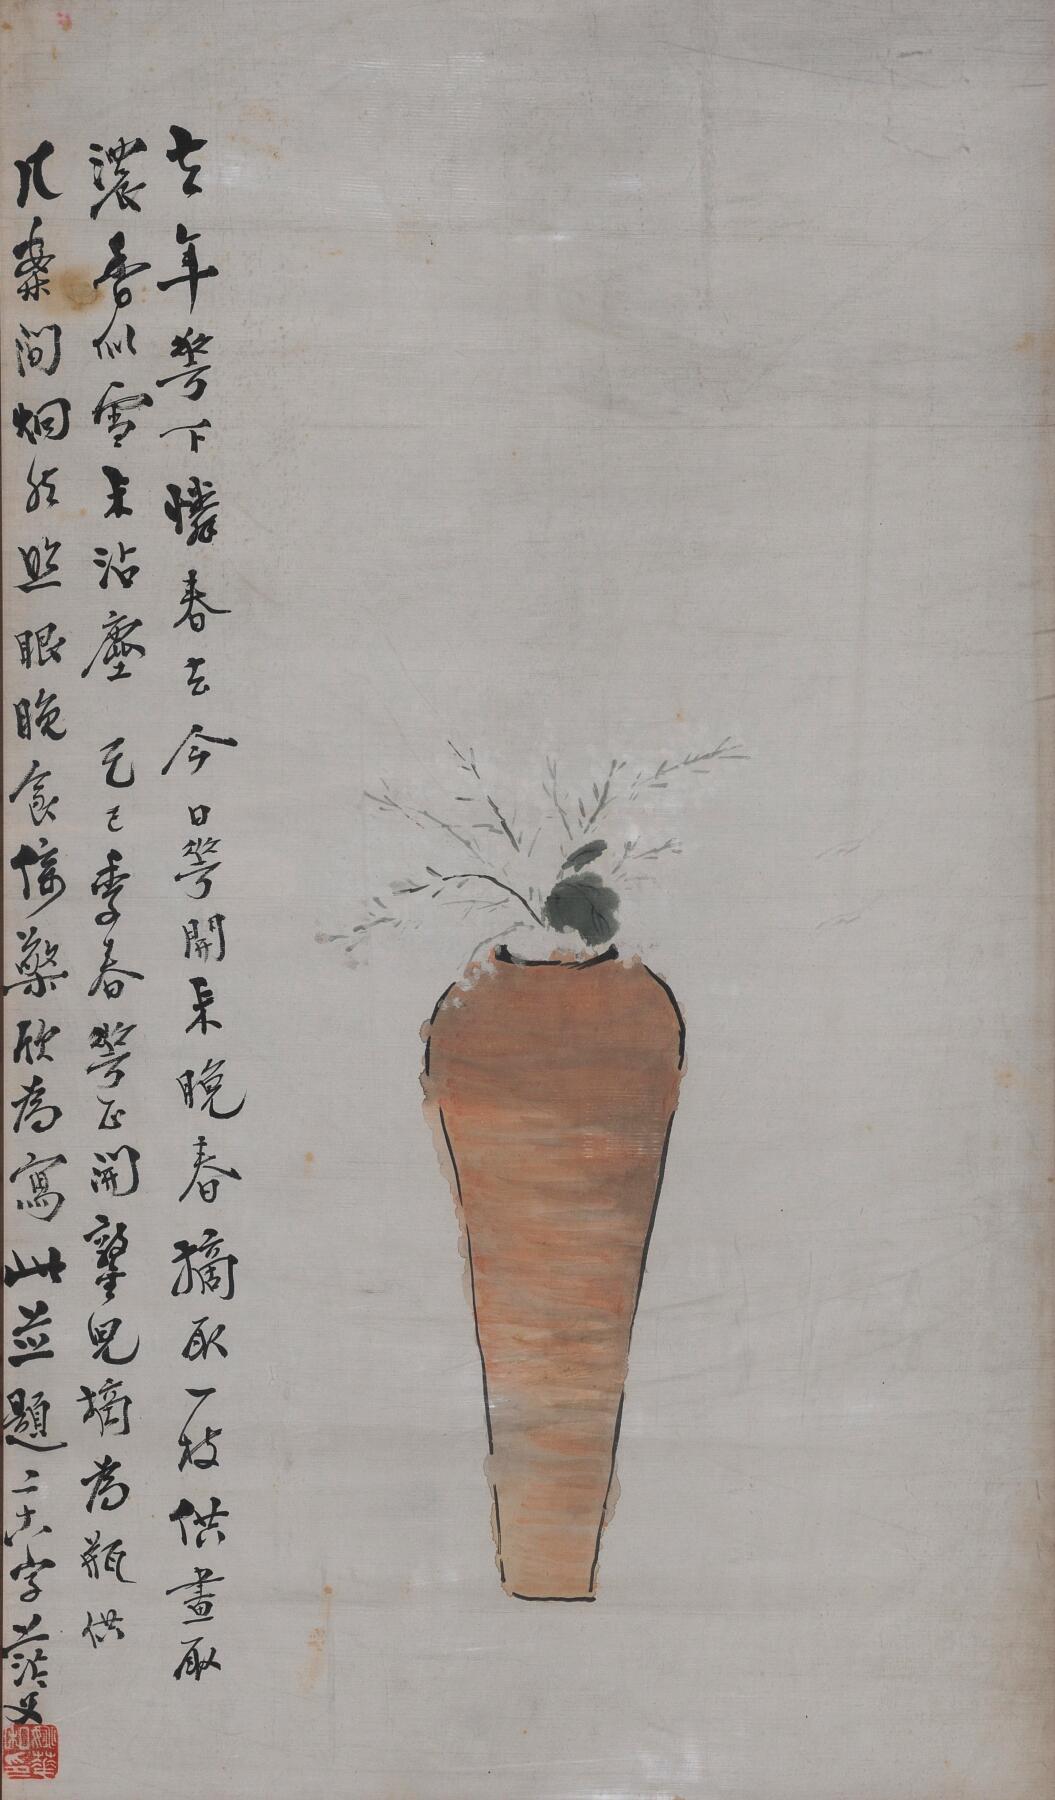 去年𠌶下憐春去今日𠌶開來晚春摘取一枝供畫取
濃香似雪未沾塵 己巳季春𠌶正開兒摘為瓶供
几案間炯然照眼晚食停藥欣為寫此並題二十八字茫父